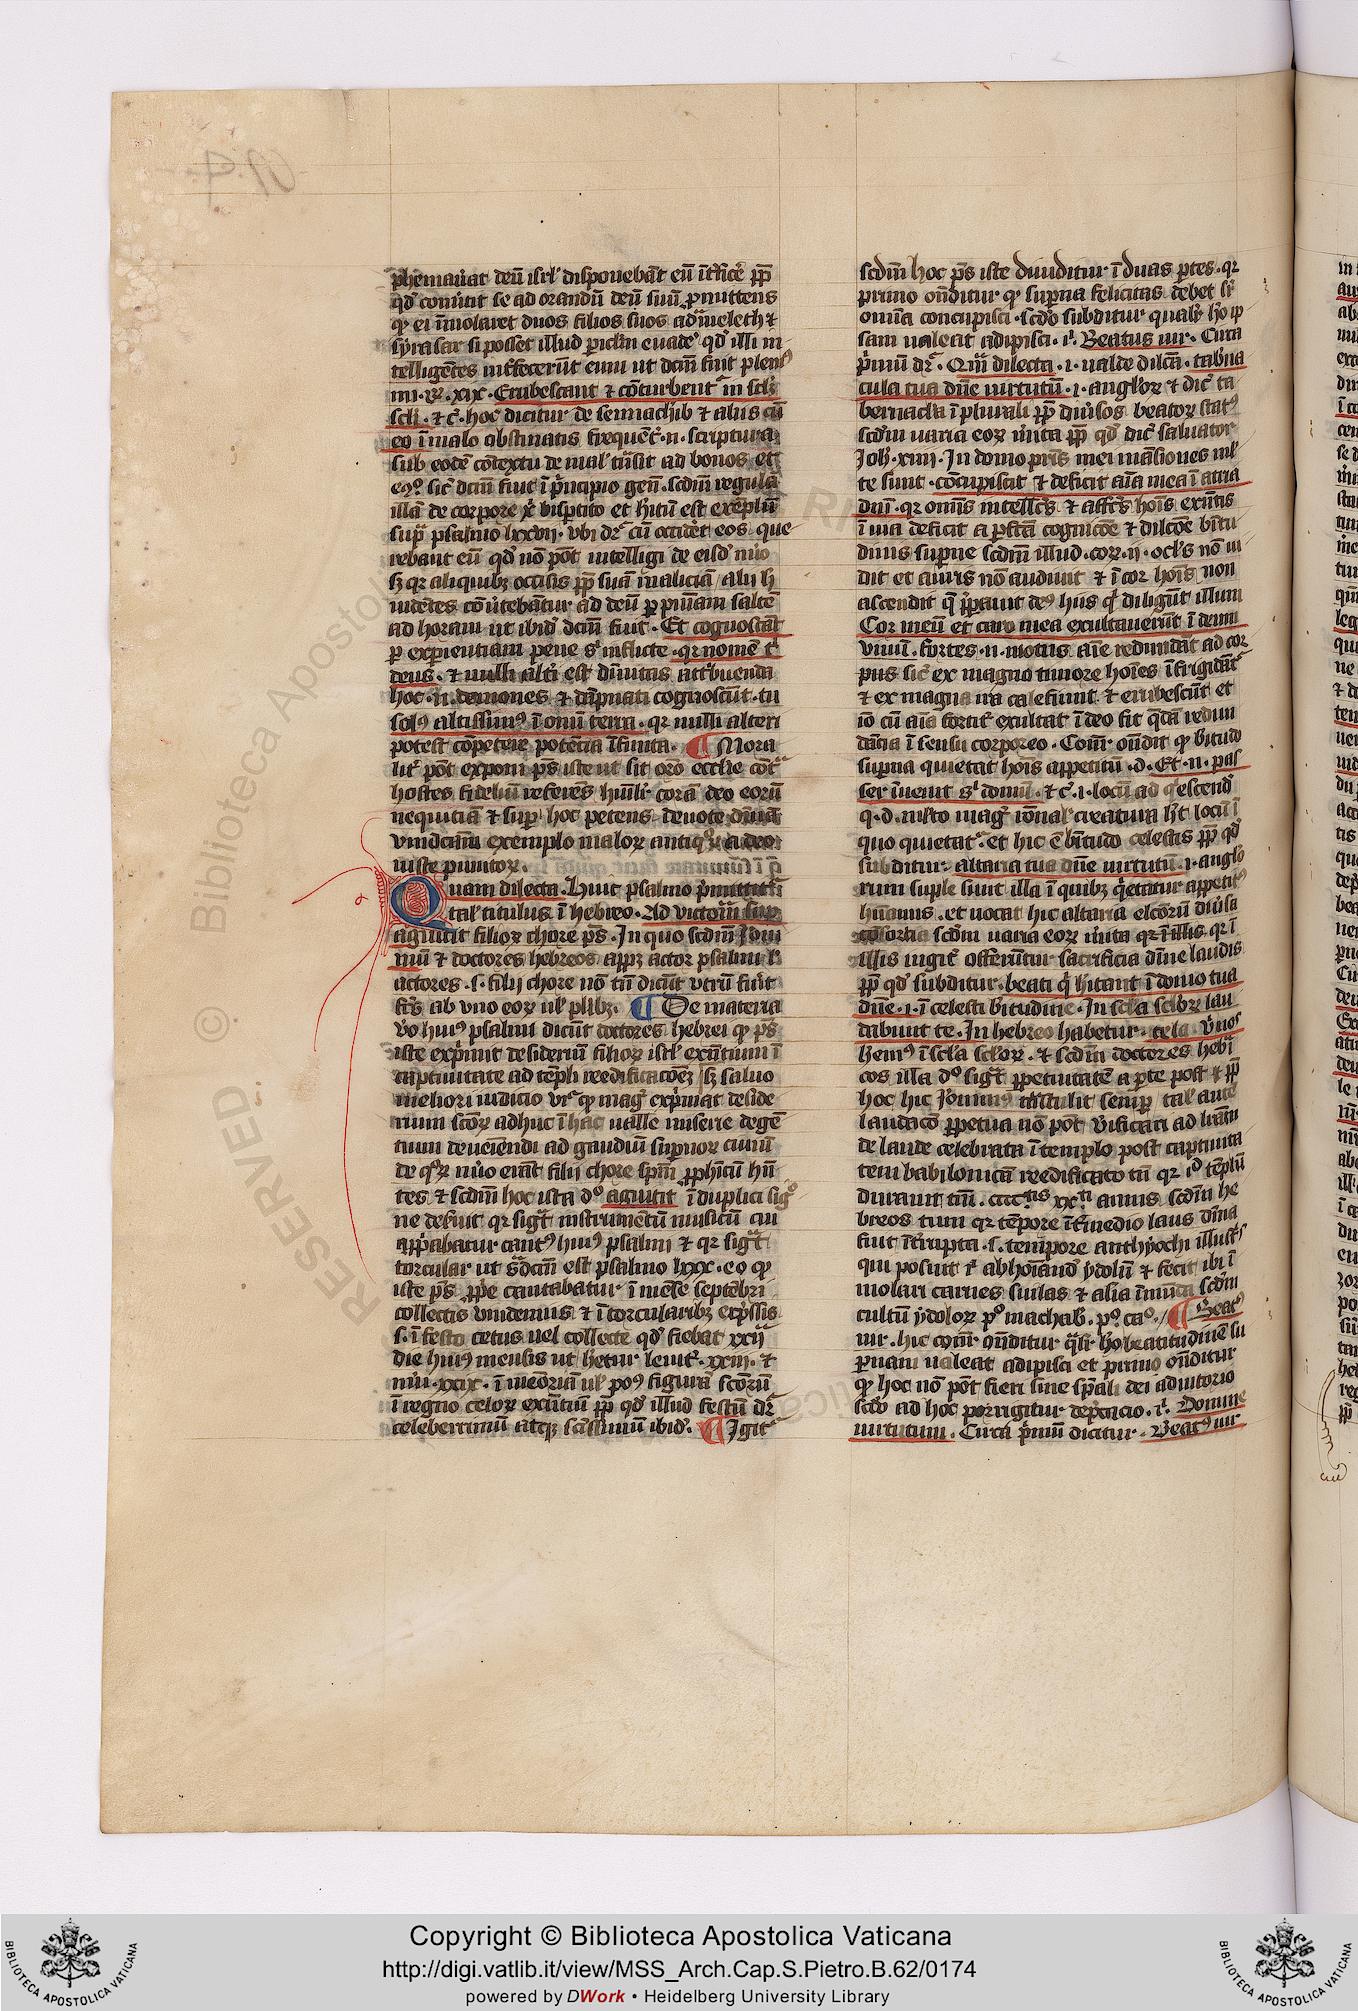 phemauerat deū isrl' disponebāt eū ītficē ꝓp
qd' conūtit se ad orandū deū suū ꝓmittens
qꝫ ei īmolaret duos filios suos adrameleth ⁊
syrasar si posset illud piclm euadē qd' illi in
telligentes intfecerūt eum ut dcm̄ fuit pleni'
iiii. xix. Erubescant ⁊ cōturbent' in sclm
scli. ⁊ c̄ hoc dicitur de sennacherib ⁊ aliis cū
eo ī malo obstinatis frequēt' n. scriptura
sub eodē cōtextu de mal' trāsit ad bonos et
eꝯ. sic' dcm̄ fuit ī p̄ncipio gen'. scdm̄ regulā
illā de corpore xp̄i bispertito et hitū est exēplū
sup̄ psalmo lxxvii. vbi dr̄ cū occidēt eos. que
rebant eū qd' nō pōt intelligi de eisd' niō
sꝫ qr aliquibꝫ occisis ꝓp suā īmaliciā alii h
uidētes cōūtebant̄ur ad deū ꝑ pniam saltē
ad horam ut ibid' dcm̄ fuit. Et cognoscāt
ꝑ experientiam pene s' inflicte. qr nomē t'
deus. ⁊ nulli alt'i est diuinitas attribuenda
hoc. n. demones ⁊ dāpnati cognoscūt. tu
sol' altissim' ī omī terra. qr nulli alteri
potest cōpetere potētia īfinita. ¶ Mora
lit' pōt exponi ps iste ut sit orō ecclie cōt'
hostes fideliū referēs hūilr corā deo eorū
nequitiā ⁊ sup hoc petens deuote diuinā
vindictā exemplo maloꝝ antiqꝝ a deo
iuste punitoꝝ.
Quam dilecta. Huic psalmo p̄mittit'
tal' titulus ī hebreo. Ad victoriā sup
agiutit filioꝝ chore ps. In quo scdm̄ Ieroni
mū ⁊ doctores hebreos appꝫ actor psalmi l'
actores. s. filij chore nō tn̄ dicūt utrū fuit
fcūs ab vno eoꝝ ul' pluribꝫ. ¶ De materia
v̊o hui' psalmi dicūt doctores hebrei qꝫ ps
iste exprimit desideriū filioꝝ isrl' exn̄tium ī
captiuitate ad tēpli reedificacōeꝫ sꝫ saluo
meliori iudicio vr̄ qꝫ mag' exprimat deside
rium scōꝝ adhuc ī hac ualle miserie degē
tium deueniendi ad gaudiū supnoꝝ ciuiū
de qꝝ nūo erāt filij chore spm̄ ꝓphicū hn̄
tes ⁊ scdm̄ hoc ista d̊ agiutit ī duplici sig̊
ne deseruit qr sigt' instrumētū musicū cui
appbabatur cant' hui' psalmi ⁊ qr sigt'
torcular ut s̄ dcm̄ est psalmo lxxx. eo qꝫ
iste ps ꝓprie cantabatur ī mēse septēbri
collectis vindemiis ⁊ ī torcularibꝫ exp̄ssis
s. ī festo cetus uel collecte qd' fiebat xxij
die hui' mensis ut h̄etur leuit'. xxiii. ⁊
nūi. xxix. ī memoriā ul' poti' figurā scōrū
ī regno celoꝝ exn̄tiū ꝓp qd' illud festū dr̄
celeberrimū atqꝫ scīssimū ibid'. ¶ Igit'
scdm̄ hoc ps iste diuiditur ī duas ptes. qr
primo ondit̄ur qꝫ supna felicitas debet sr
omīa concupisci. scdo subditur qualr hō ip
sam ualeat adipisci. i'. Beatus uir. Circa
primū dr̄. Qm̄ dilecta. i. ualde dilcā. taberna
cula tua dn̄e uirtutū. i. angloꝝ ⁊ dic' ta
bernacla ī plurali ꝓp diuersos beatoꝝ stat'
scdm̄ uaria eoꝝ mīta ꝓp qd' dic' saluator
Joh'. xiiii. In domo pris mei māsiones ml'
te sunt. cōcupiscit ⁊ deficit aīa mea ī atria
dni. qr omīs intellcs ⁊ affcūs hoīs exn̄tis
ī uia deficit a pfcā cognicōe ⁊ dilcōe btitu
dinis supne scdm̄ illud. coꝝ. ii. ocl's nō ui
dit et auris nō audiuit ⁊ ī cor hoīs non
ascendit q̄ ppauit de' hiis q' diligūt illum
Cor meū et caro mea exultauerūt ī deum
viuū. fortes. n. motus aīe redundāt ad cor
pus sic' ex magno timore hoīes īfrigidāt'
⁊ ex magna ira calefiunt ⁊ erubescūt et
iō cū aīa fortit' exultat ī deo fit q̄dā redun
dācia ī sensu corporeo. Conr ondit qꝫ btitudo
supna quietat hoīs appetitū. d. Et. n. pas
ser īuenit s' domū. ⁊ c̄. i. locū ad q' escend'
q. d. mlto mag' rōnal' creatura h̄t locū ī
quo quietat'. et hic ē btitudo celestis ꝓp qd'
subditur. altaria tua dn̄e uirtutū. i. anglo
rum suple sunt illa ī quibꝫ q̄etatur appetit'
hūanus. et uocat hic altaria elcōrū diuersa
cōsorcia scdm̄ uaria eoꝝ mīta qr ī illis. qr ī
illis iugit' offerūtur sacrificia diuine laudis
ꝓp qd' subditur. beati q' hītant ī domo tua
dn̄e. i. ī celesti btitudine. In scla scloꝝ lau
dabunt te. In hebreo habetur. cela. v̊ nos
hem' ī scla scloꝝ. ⁊ scdm̄ doctores hebi
cos illa d̊ sigt' ꝑpetuitatē a pte post ⁊ ꝓp
hoc hic Jeronim' trāstulit semp tal' autē
laudacō ꝑpetua nō pōt vificari ad lr̄am
de laude celebrata ī templo post captiuita
tem babilonicā reedificato tū qr id tēplū
durauit tm̄. cccc tis xx ti annis scdm̄ he
breos tum qr tēpore ītmedio laus diuina
fuit īterrupta. s. tempore anthyochi illustr'
qui posuit i' abhoīand' ydolū ⁊ fecit ibi ī
molari carnes suilas ⁊ alia īmūda scdm̄
cultū ydoloꝝ p̊ machab. p̊ cå. ¶ Beat'
uir. hic conr ondit̄ur qlr hō beatitudinē su
pernam ualeat adipisci et primo ondit̄ur
qꝫ hoc nō pōt fieri sine spāli dei adiutorio
scdo ad hoc porrigitur dep̄cacio. i'. Domine
uirtutum. Circa primū dicitur. Beat' uir
Copyright © Biblioteca Apostolica Vaticana
http://digi.vatlib.it/view/MSS_Arch.Cap.S.Pietro.B.62/0174
powered by DWork • Heidelberg University Library